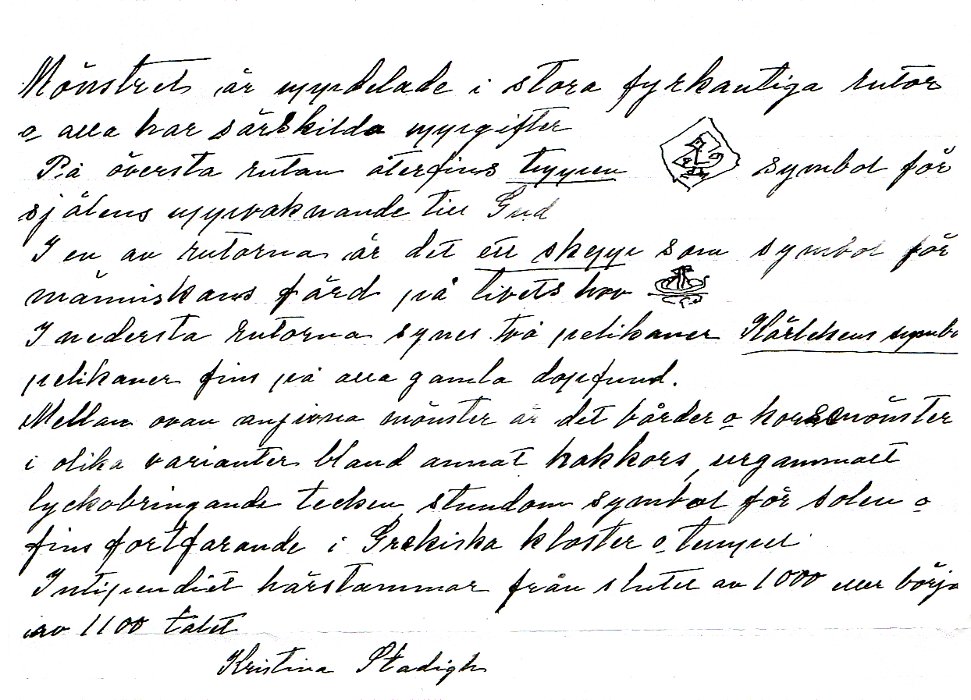 Mönstret är uppdelade i stora fyrkantiga rutor
o alla har särskilda uppgifter
På översta rutan återfins tuppen symbol för
själens uppvaknande till Gud
I en av rutorna är det ett skepp som symbol för
människans färd på livets hav
I nedersta rutorna synes två pelikaner Kärlekens symbo
pelikaner fins på alla gamla dopfund.
Mellan ovan angivna mönster är det bårder o korsmönster
i olika varianter bland annat hakkors, urgammalt
lyckobringande tecken stundom symbol för solen o
fins fortfarande i Grekiska kloster o tempel
Antipendiet härstammar från slutet av 1000 eller börja
av 1100 talet
Kristina Stadigh